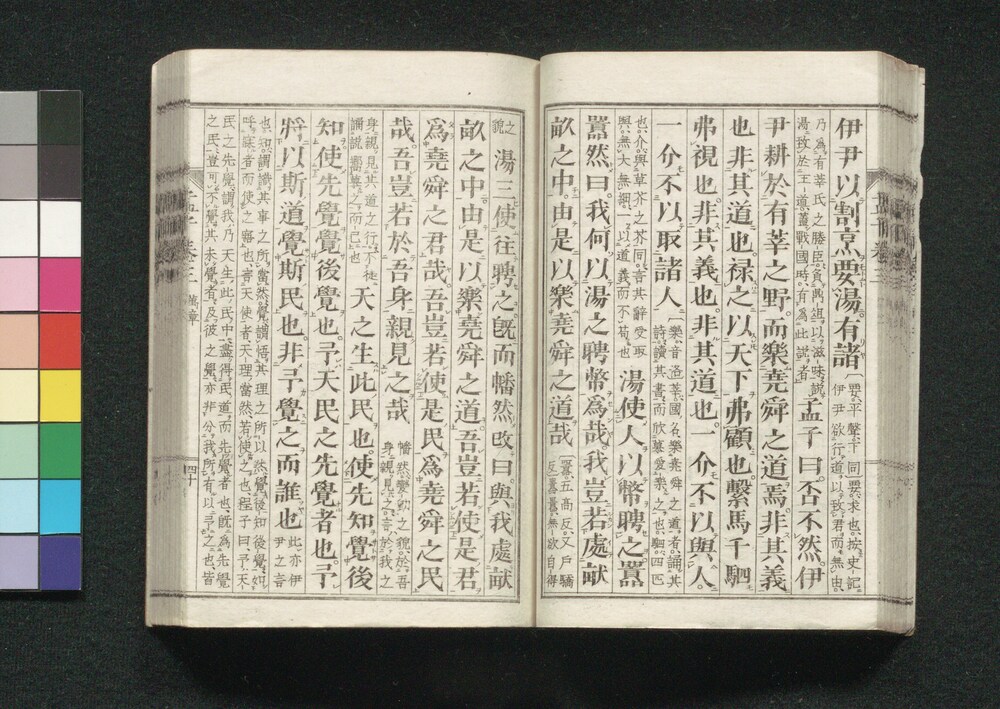 伊尹以割烹要湯有諸要平聲下同要求也按史記伊尹欲行道以致君而無由
乃爲有莘氏之媵臣負鼎俎以滋味說湯致於王道蓋戰國時有爲此說者孟子曰否不然伊
尹耕於有莘之野而樂堯舜之道焉非其義
也非其道也祿之以天下弗顧也繫馬千駟
弗視也非其義也非其道也一介不以與人
一介不以取諸人樂音洛莘國名樂堯舜之道者誦其詩讀其書而欣慕愛樂之也駟四匹
也介與草芥之芥同言其辭受取與無大無細一以道義而不苟也湯使人以幣聘之囂
囂然曰我何以湯之聘幣爲哉我豈若處畎
畝之中由是以樂堯舜之道哉囂五高反又戶驕反囂囂無欲自得
之貌湯三使往聘之既而幡然改曰與我處畎
畝之中由是以樂堯舜之道吾豈若使是君
爲堯舜之君哉吾豈若使是民爲堯舜之民
哉吾豈若於吾身親見之哉幡然變動之貌於吾身親見之言於我之
身親見其道之行不徒誦說嚮慕之而已也天之生此民也使先知覺後
知使先覺覺後覺也予天民之先覺者也予
將以斯道覺斯民也非予覺之而誰也此亦伊尹之言
也知謂識其事之所當然覺謂悟其理之所以然覺後知後覺如呼寐者而使之寤也言天使者天理當然若使之也程子曰予天
民之先覺謂我乃天生此民中盡得民道而先覺者也既爲先覺之民豈可不覺其未覺者及彼之覺亦非分我所有以予之也皆
孟子 卷三 萬章
四十
孟子 卷三